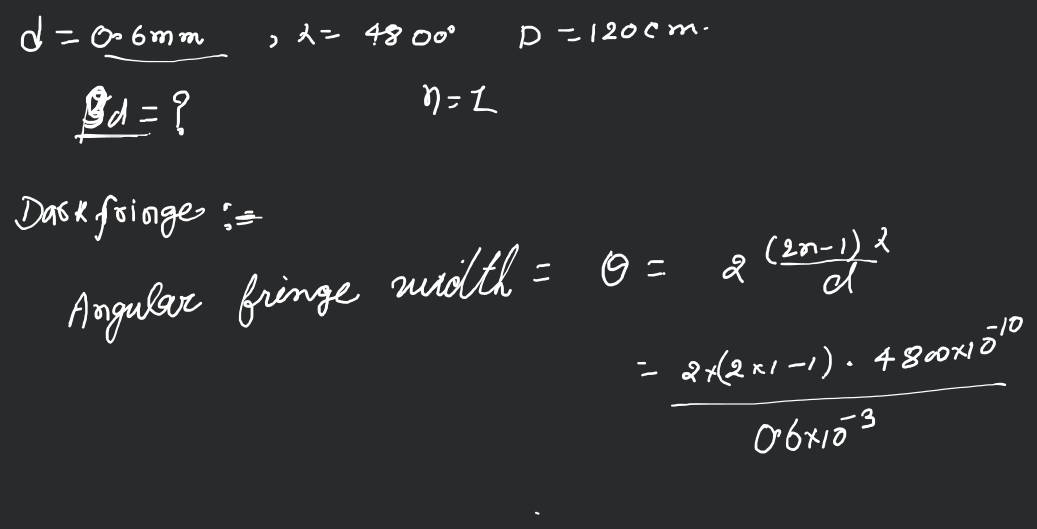 d = 0.6mm , λ = 4800° D = 120cm.
βd = ? n = 1
Dark fringe :=
Angular fringe width = θ = 2 (2n-1) λ / d
= 2×(2×1-1) . 4800×10^-10 / 0.6×10^-3